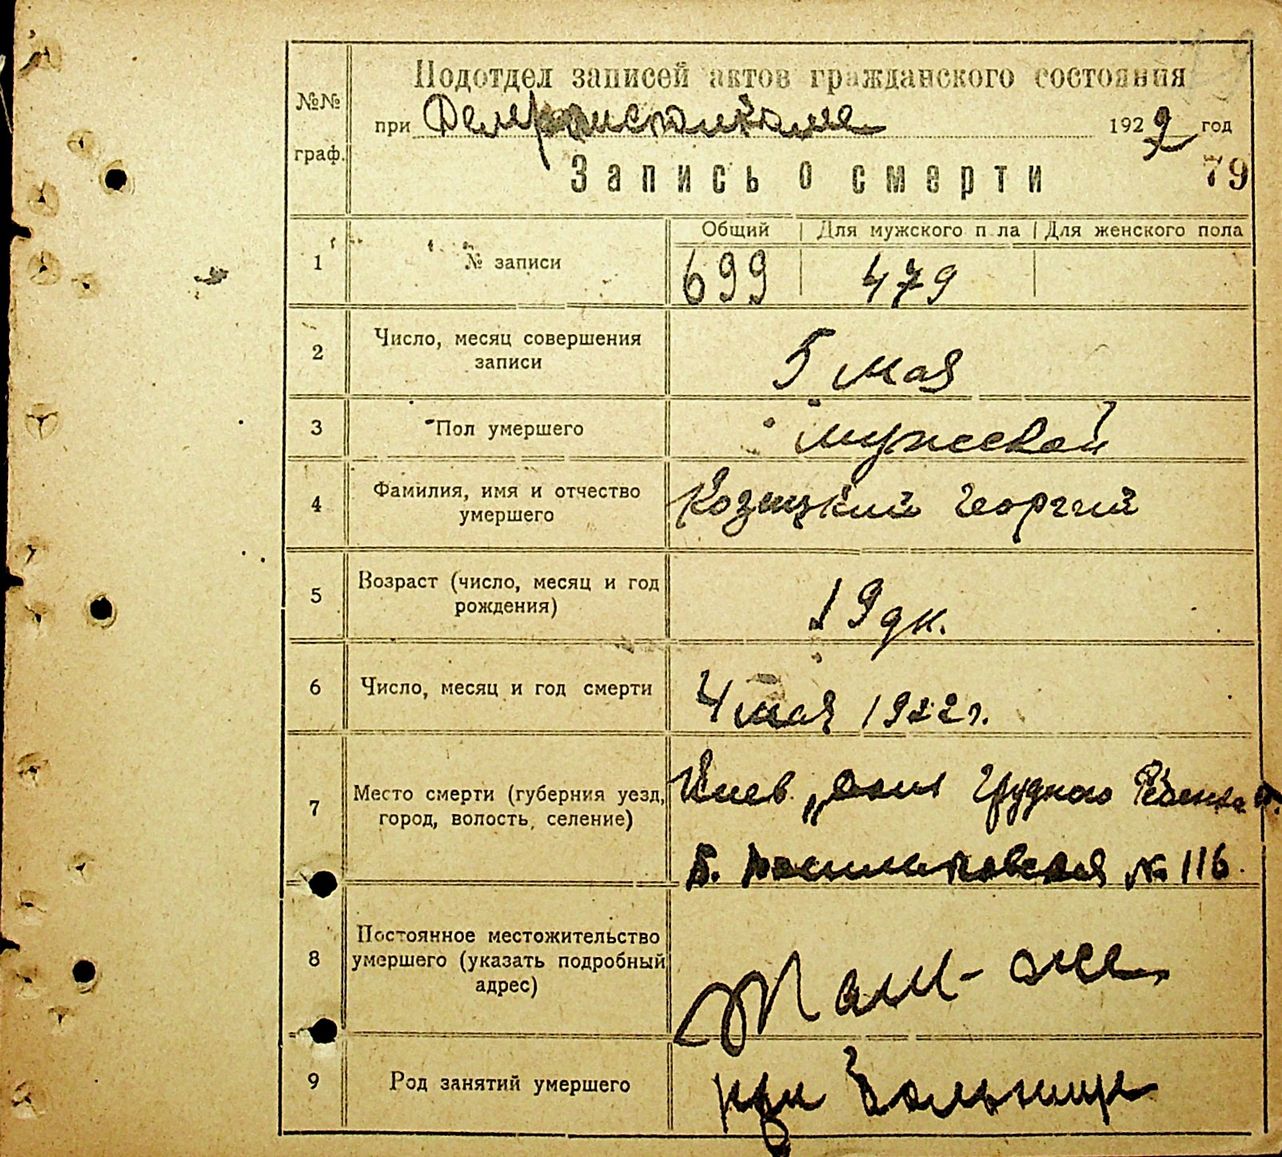 Подотдел записей актов гражданского состояния
при 1922 год
Запись о смерти 79
№№ граф.
1 № записи Общий Для мужского п ла Для женского пола
699 479
2 Число, месяц совершения записи 5 мая
3 Пол умершего мужской
4 Фамилия, имя и отчество умершего Козицкий Георгий
5 Возраст (число, месяц и год рождения) 19 дн.
6 Число, месяц и год смерти 4 мая 1922 г.
7 Место смерти (губерния уезд, город, волость, селение) Киев, „Дом Грудного Ребенка“.
Б. Васильковская № 116.
8 Постоянное местожительство умершего (указать подробный адрес) Там-же
9 Род занятий умершего при